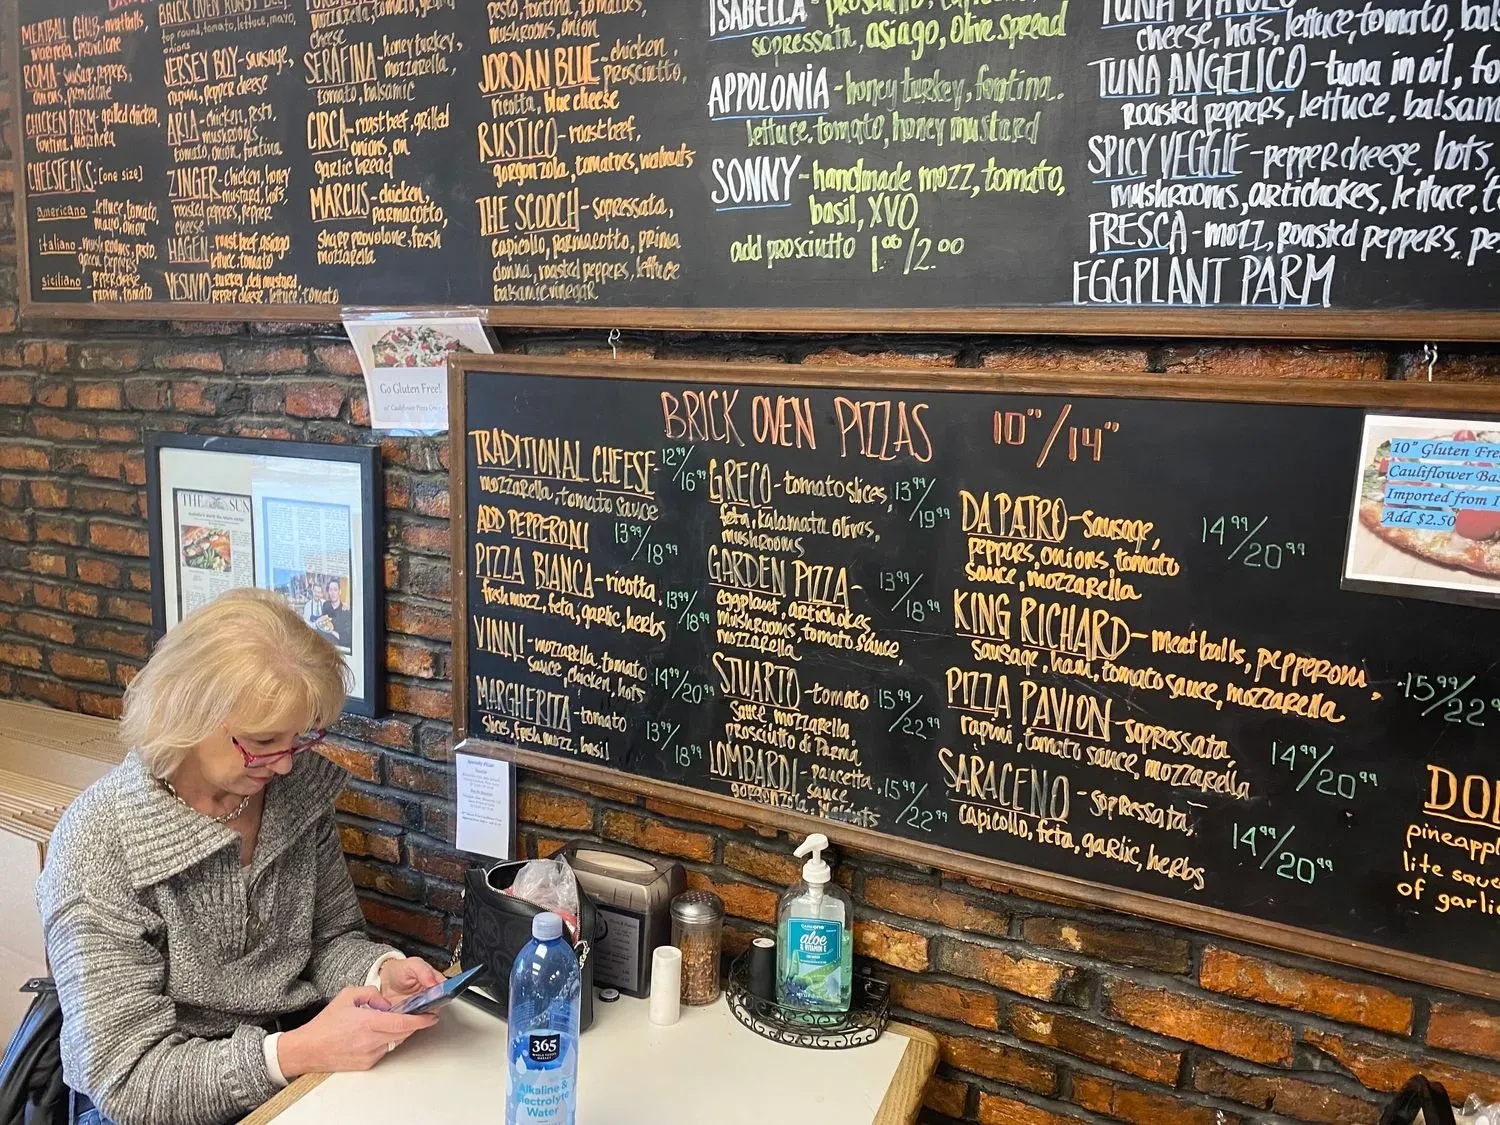 MEATBALL CHUB - meatballs,
marinera, provolone
ROMA - sausage, peppers,
onions, provolone
CHICKEN PARM - grilled chicken,
fontina, marinera
CHEESTEAKS: [one size]
americano - lettuce, tomato,
mayo, onion
italiano - mushrooms, pesto,
green peppers
siciliano - pepper cheese,
rapini, tomato
BRICK OVEN ROAST BEEF
top round, tomato, lettuce, mayo,
onions
JERSEY BOY - sausage,
rapini, pepper cheese
ARIA - chicken, pesto,
mushrooms,
tomato, onion, fontina
ZINGER - chicken, honey
mustard, hots,
roasted peppers, pepper
cheese
HAGEN - roast beef, asiago
lettuce, tomato
VESUVIO - turkey, deli mustard,
pepper cheese, lettuce, tomato
mozzarella, tomato, grilled
cheese
SERAFINA - honey turkey,
mozzarella,
tomato, balsamic
CIRCA - roast beef, grilled
onions, on
garlic bread
MARCUS - chicken,
parmacotto,
sharp provolone, fresh
mozzarella
pesto, fontina, tomatoes,
mushrooms, onion
JORDAN BLUE - chicken,
prosciutto,
ricotta, blue cheese
RUSTICO - roast beef,
gorgonzola, tomatoes, walnuts
THE SCOOCH - sopressata,
capicollo, parmacotto, prima
donna, roasted peppers, lettuce
balsamic vinegar
ISABELLA - prosciutto, capicollo,
sopressata, asiago, olive spread
APPOLONIA - honey turkey, fontina.
lettuce, tomato, honey mustard
SONNY - handmade mozz, tomato,
basil, XVO
add prosciutto 1.00/2.00
TUNA DIAVOLO
cheese, hots, lettuce, tomato, bal
TUNA ANGELICO - tuna in oil, fo
roasted peppers, lettuce, balsam
SPICY VEGGIE - pepper cheese, hots,
mushrooms, artichokes, lettuce, t
FRESCA - mozz, roasted peppers, pe
EGGPLANT PARM
Go Gluten Free!
10" Cauliflower Pizza Crust
THE SUN
BRICK OVEN PIZZAS 10"/14"
TRADITIONAL CHEESE - 12.99/16.99
mozzarella, tomato sauce
ADD PEPPERONI 13.99/18.99
PIZZA BIANCA - ricotta, 13.99/18.99
fresh mozz, feta, garlic, herbs
VINNI - mozzarella, tomato 14.99/20.99
sauce, chicken, hots
MARGHERITA - tomato 13.99/18.99
slices, fresh mozz, basil
GRECO - tomato slices, 13.99/19.99
feta, kalamata olives,
mushrooms
GARDEN PIZZA - 13.99/18.99
eggplant, artichokes
mushrooms, tomato sauce,
mozzarella
STUARTO - tomato 15.99/22.99
sauce mozzarella
prosciutto di Parma
LOMBARDI - pancetta, 15.99/22.99
sauce,
gorgonzola, walnuts
DA PATRO - sausage, 14.99/20.99
peppers, onions, tomato
sauce, mozzarella
KING RICHARD - meatballs, pepperoni, 15.99/22.99
sausage, ham, tomato sauce, mozzarella
PIZZA PAVION - sopressata, 14.99/20.99
rapini, tomato sauce, mozzarella
SARACENO - sopressata, 14.99/20.99
capicollo, feta, garlic, herbs
10" Gluten Fre
Cauliflower Bas
Imported from I
Add $2.50
DO
pineappl
lite sauce
of garlic
Specialty Pizzas
aloe
& VITAMIN E
365
WHOLE FOODS
MARKET
Alkaline &
Electrolyte
Water